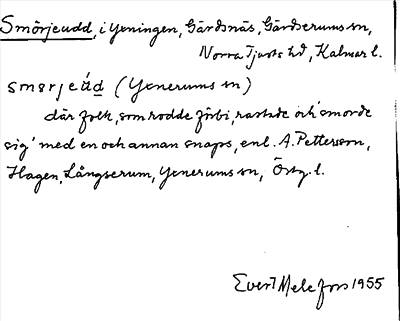 Smörjeudd, i Yxningen, Gärdsnäs, Gärdserums sn,
Norra Tjusts hd, Kalmar l.
smørjeu̇́d (Yxnerums sn)
där folk, som rodde förbi, rastade och 'smorde
sig' med en och annan snaps, enl. A. Pettersson,
Hagen, Långserum, Yxnerums sn, Östg. l.
Evert Melefors 1955